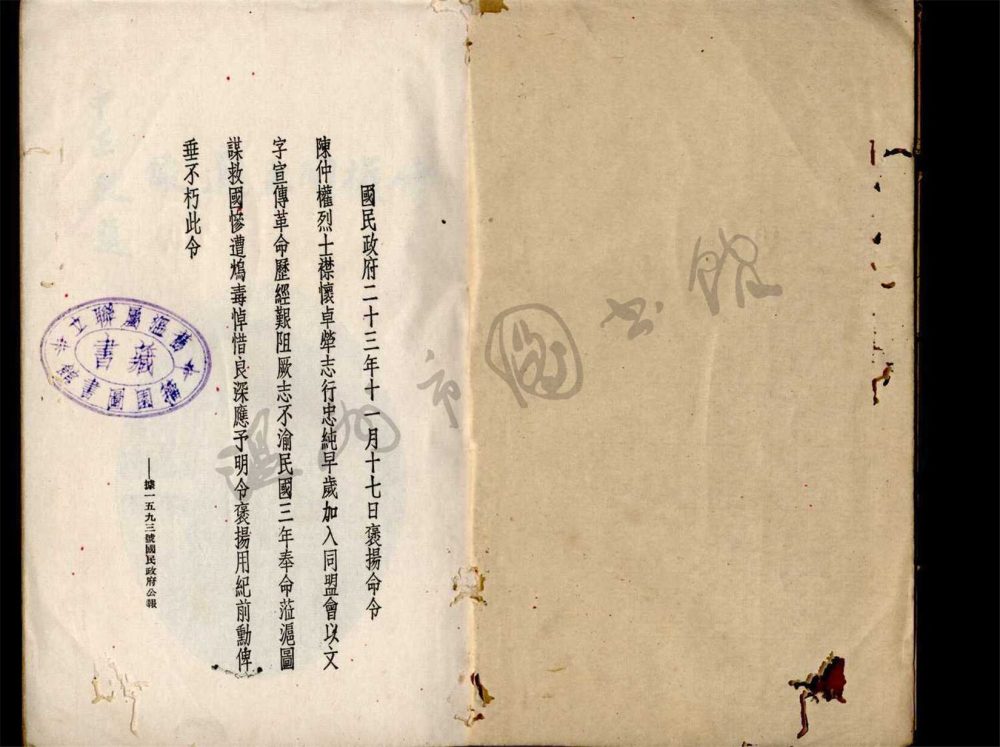 國民政府二十三年十一月十七日褒揚命令
陳仲權烈士襟懷卓犖志行忠純早歲加入同盟會以文
字宣傳革命歷經艱阻厥志不渝民國三年奉命蒞滬圖
謀救國慘遭鴆毒悼惜良深應予明令褒揚用紀前勳俾
垂不朽此令
——據一五九三號國民政府公報
藏書
温州市圖书館